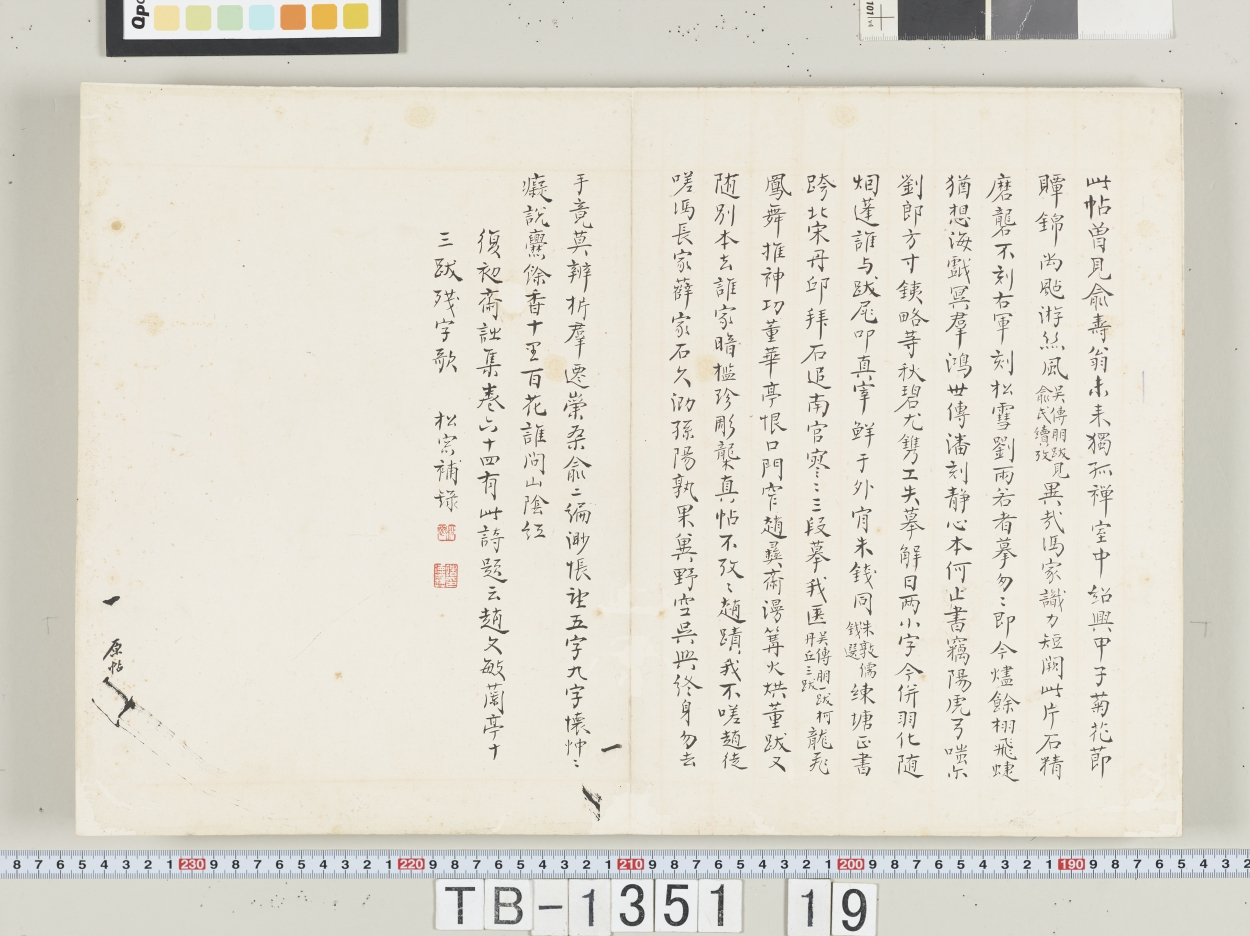 此帖曾見俞壽翁未来獨孤禅室中紹興甲子菊花節
贉錦尚颭游絲風吳傅朋跋見俞氏續攷異哉馮家識力短闕此片石精
磨礱不刻右軍刻松雪劉雨若者摹勿〻即今燼餘栩飛蜨
猶想海戲冥羣鴻世傳潘刻静心本何止書竊陽虎弓嗤尓
劉郎方寸銕略等秋碧尤鎸工失摹解日两小字今併羽化随
烟蓬誰与跋尾叩真宰鲜于外肎朱錢同朱敦儒錢選練塘正書
跨北宋丹邱拜石追南官寥〻三段摹我匧吳傅朋一跋柯丹丘三跋龍飛
鳳舞推神功董華亭恨口門窄趙彝斎漫篝火烘董跋又
随别本去誰家暗櫃珍彫龔真帖不攷〻趙蹟我不嗟趙徒
嗟馮長家薛家石久泐孫陽孰果冀野空吳興終身勿去
手竟莫辨析羣遷崇桑俞二編渺悵望五字九字懐忡〻
癡說爇餘香十里百花誰问山陰红
復初斎詩集巻六十四有此詩題云趙文敏蘭亭十
三跋殘字歌 松窗補録
原帖
TB-1351 19